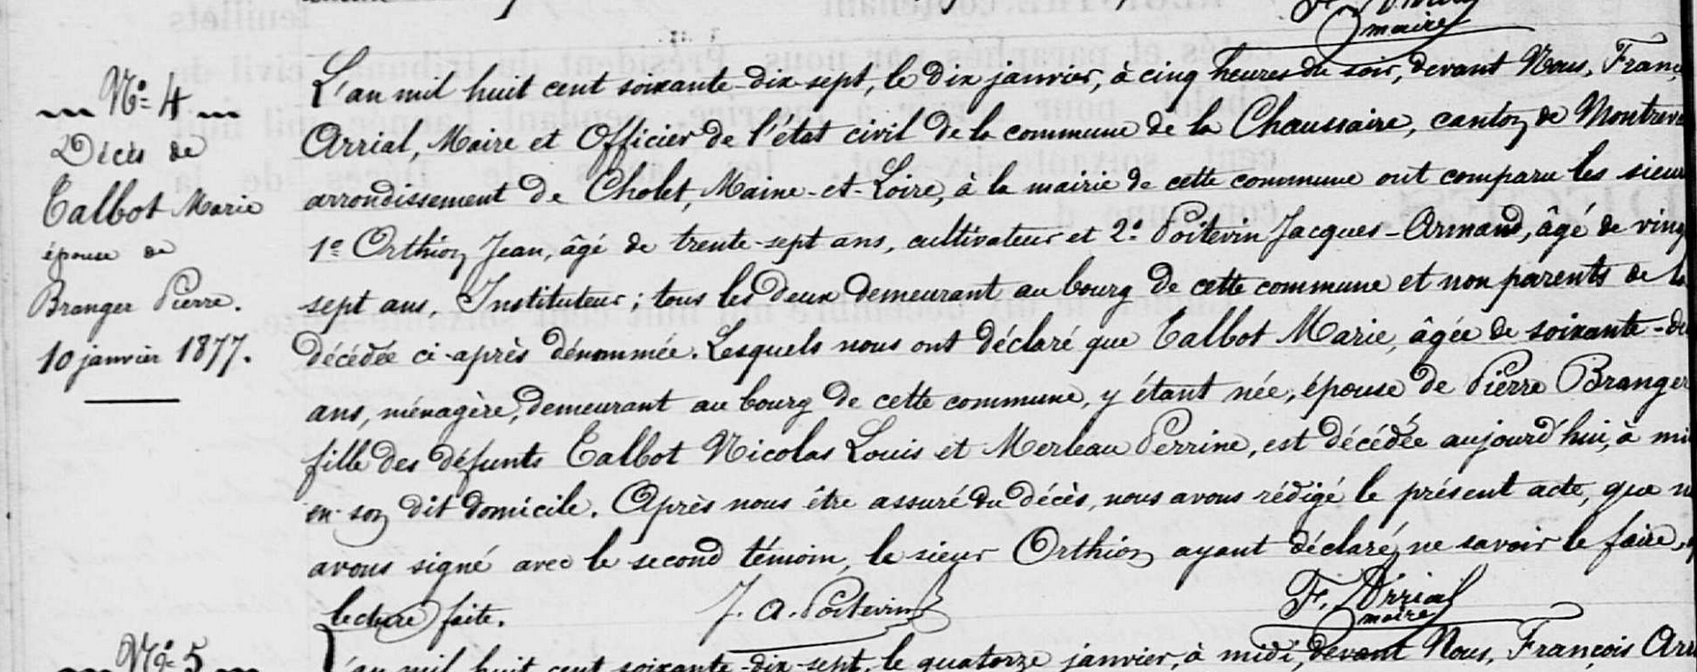 maire
N° 4
Décès de
Talbot Marie
épouse de
Branger Pierre.
10 janvier 1877.
L'an mil huit cent soixante-dix-sept, le dix janvier, à cinq heures du soir, devant Nous, Franç
Arrial, Maire et Officier de l'état civil de la commune de la Chaussaire, canton de Montrev
arrondissement de Cholet, Maine-et-Loire, à la mairie de cette commune ont comparu les sieur
1° Orthion Jean, âgé de trente-sept ans, cultivateur et 2° Poitevin Jacques-Armand, âgé de ving
sept ans, Instituteur; tous les deux demeurant au bourg de cette commune et non parents de la
décédée ci-après dénommée. Lesquels nous ont déclaré que Talbot Marie, âgée de soixante-di
ans, ménagère, demeurant au bourg de cette commune, y étant née, épouse de Pierre Branger
fille des défunts Talbot Nicolas Louis et Merleau Perrine, est décédée aujourd'hui, à mi
en son dit domicile. Après nous être assuré du décès, nous avons rédigé le présent acte, que n
avons signé avec le second témoin, le sieur Orthion ayant déclaré ne savoir le faire,
lecture faite.
J. A. Poitevin
F. Arrial
maire
N° 5
L'an mil huit cent soixante-dix-sept, le quatorze janvier, à midi, devant Nous, François Arr